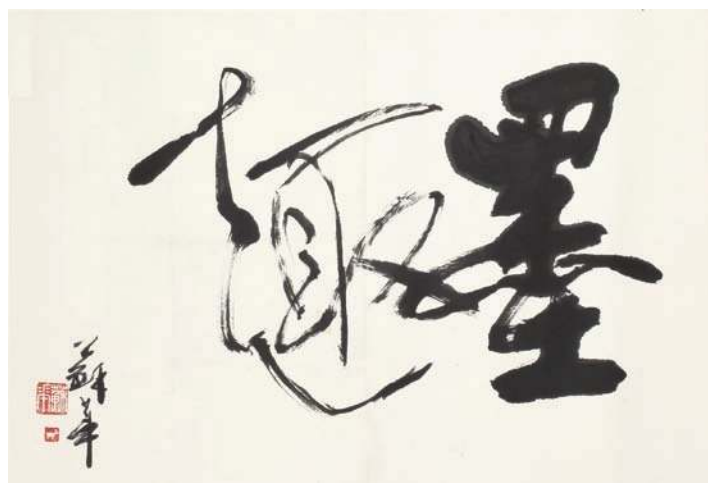 墨趣
蘇華